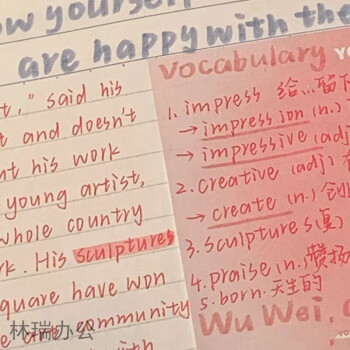 ow yourself
are happy with the
t," said his
t and doesn't
nt his work
young artist,
whole country
rk. His sculptures
quare have won
e art community
with
Vocabulary
1. impress 给…留下
→ impression (n.)
→ impressive (adj)
2. creative (adj)
→ create (n.) 创
3. sculptures (复)
4. praise (n.) 赞扬
5. born. 天生的
Wu Wei.
林瑞办公